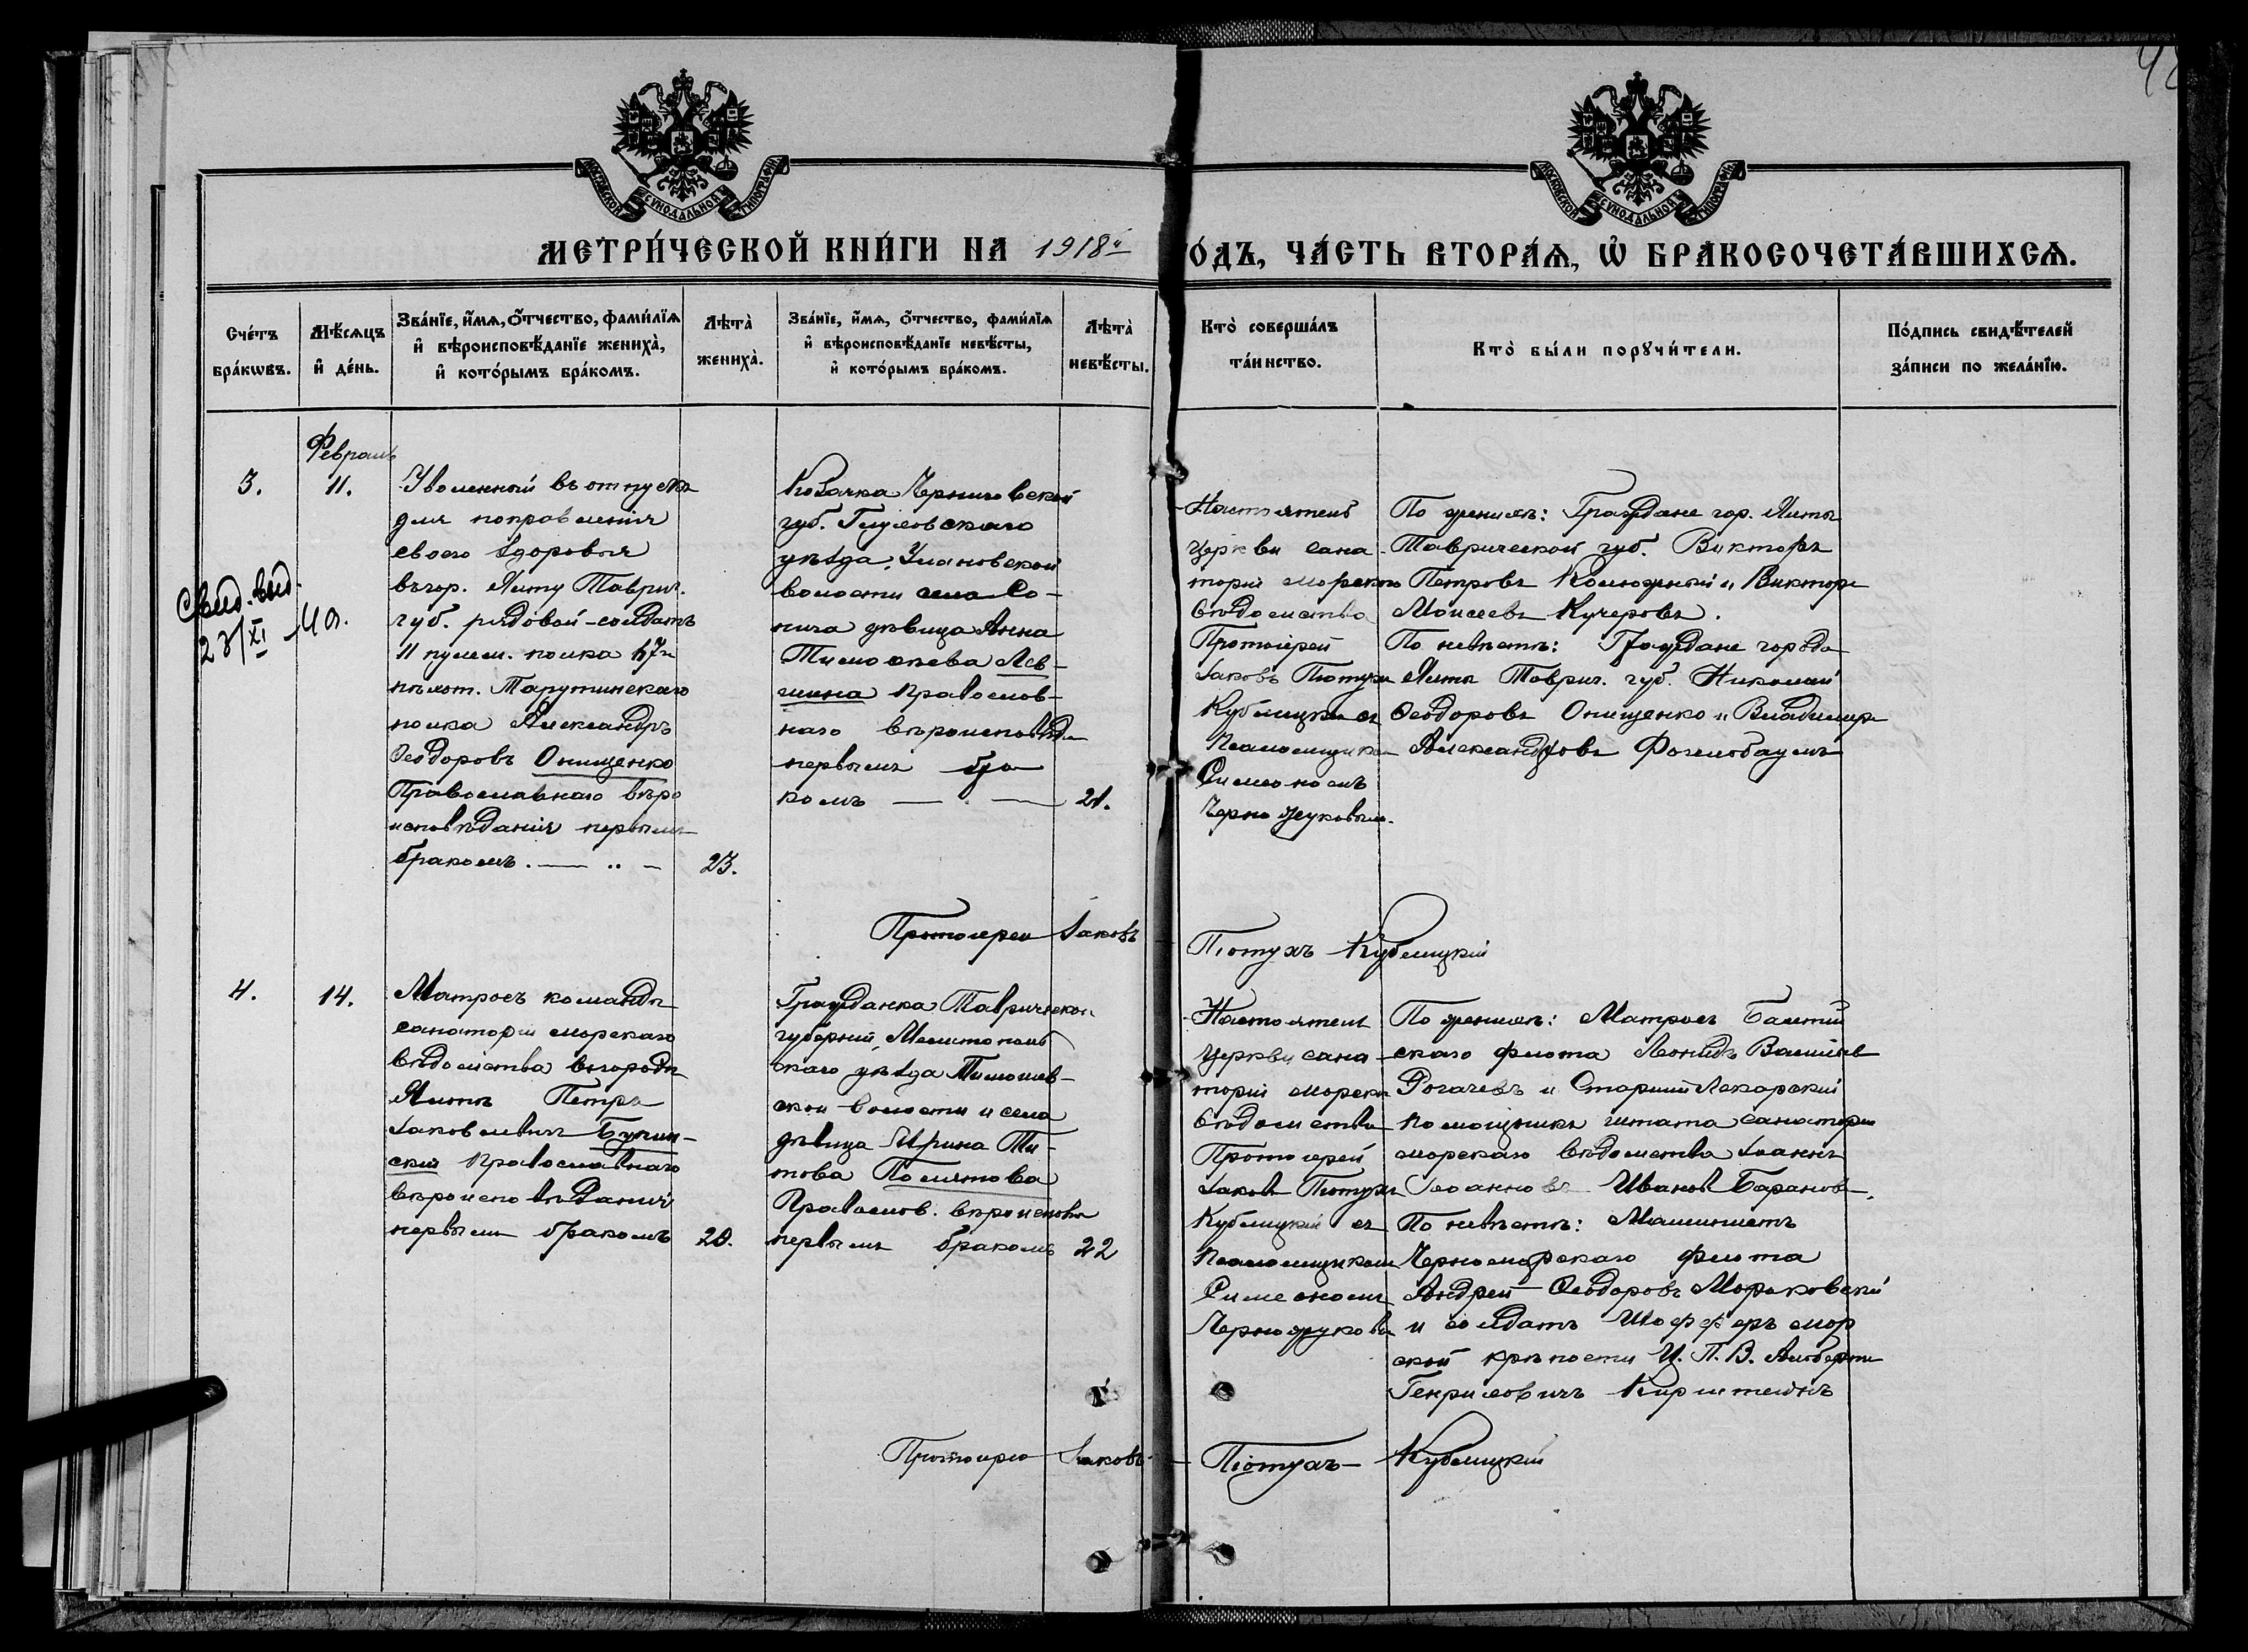 МОСКОВСКОЙ СѴНОДАЛЬНОЙ ТИПОГРАФІИ
МОСКОВСКОЙ СѴНОДАЛЬНОЙ ТИПОГРАФІИ
МЕТРИ́ЧЕСКОЙ КНИ́ГИ НА 1918й ГО́ДЪ, ЧА́СТЬ ВТОРА́Ѧ, Ѡ҆ БРАКОСОЧЕТА́ВШИХСѦ.
Сче́тъ бра́кѡвъ.
Мѣ́сѧцъ и҆ де́нь.
Зва́нїе, и҆́мѧ, ѻ҆́тчество, фами́лїѧ
и҆ вѣроисповѣ́данїе жениха̀,
и҆ кото́рымъ бра́комъ.
Лѣта̀ жениха̀.
Зва́нїе, и҆́мѧ, ѻ҆́тчество, фами́лїѧ
и҆ вѣроисповѣ́данїе невѣ́сты,
и҆ кото́рымъ бра́комъ.
Лѣта̀ невѣ́сты.
Кто̀ соверша́лъ та́инство.
Кто̀ бы́ли порꙋчи́тели.
По́дпись свидѣ́телей за́писи по жела́нїю.
3.
Февраль
11.
Свид. выд.
Уволенный въ отпускъ
для поправленія
своего здоровья
въ гор. Ялту Таврич.
губ. рядовой-солдатъ
11 пулем. полка 67й
пѣхот. Тарутинскаго
полка Александръ
Ѳеодоровъ Онищенко
Православнаго вѣро
исповѣданія первымъ
бракомъ. — „ —
23.
Козачка Черниговской
губ. Глуховскаго
уѣзда, Улановской
волости села Со-
пича дѣвица Анна
Тимоѳеева Лев-
шина Православ-
наго вѣроисповѣда
первымъ бра
комъ — . —
21.
Настоятель
церкви сана-
торіи морского
вѣдомства
Протоіерей
Іаковъ Пютухъ
Кублицкій съ
Псаломщикомъ
Симеономъ
Черножуковым.
По женихѣ: Граждане гор. Ялты
Таврической губ. Викторъ
Петровъ Колюжный и Викторъ
Моисеевъ Кучеровъ.
По невѣстѣ: Граждане города
Ялты Таврич. губ. Николай
Ѳеодоровъ Онищенко и Владимиръ
Александровъ Фогельбаумъ
Протоіерей Іаковъ Пютухъ Кублицкій
4.
14.
Матросъ команды
санаторіи морскаго
вѣдомства въ городѣ
Ялтѣ Петръ
Іаковлевичъ Букин-
скій Православнаго
вѣроисповѣданія
первымъ бракомъ
20.
Гражданка Таврической
губерніи, Мелитополь
скаго уѣзда Тимошев-
ской волости и села
дѣвица Ирина Ти-
това Полятова
Православ. вѣроисповѣд
первымъ бракомъ
22
Настоятель
церкви сана-
торіи морскаго
вѣдомства
Протоіерей
Іаковъ Пютухъ
Кублицкій съ
Псаломщикомъ
Симеономъ
Черножуковым
По женихѣ: Матросъ Балтій
скаго флота Леонидъ Васильев
Рогачевъ и Старшій Лекарскій
помощникъ штата санаторіи
морскаго вѣдомства Іоаннъ
Іоанновъ Ивановъ Барановъ.
По невѣстѣ: Машинистъ
Черноморскаго флота
Андрей Ѳеодоровъ Мораховскій
и солдатъ Шофферъ мор
ской крѣпости И. П. В. Альбертъ
Генриховичъ Кирштейнъ
Протоіерей Іаковъ Пютухъ Кублицкій